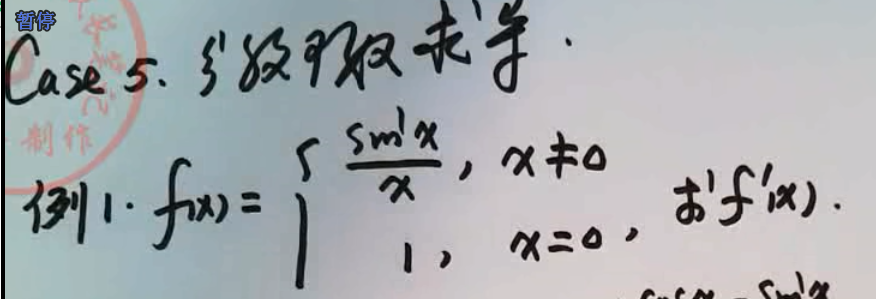 暂停
Case 5. 分段函数求导.
制作
例1. f(x) = { sin x / x , x ≠ 0
1 , x = 0 , 求 f'(x).